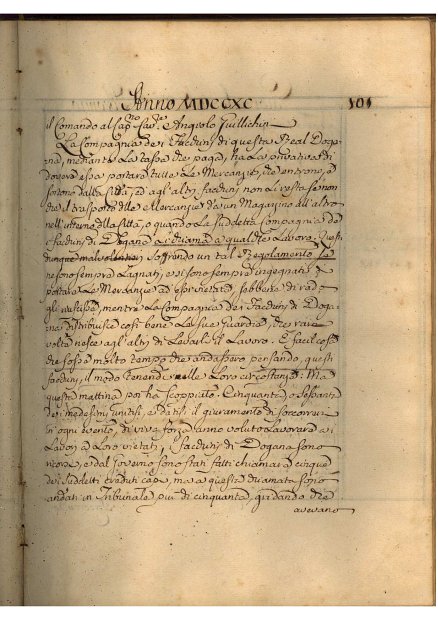 Anno MDCCXC 101
il Comando al Cap.no Cav.re Angiolo Guillichini
La Compagnia dei Facchini di questa Real Dogana
na, mediante la tassa che paga, ha la privativa di
dovere essa portare tutte le Mercanzie, che entrono, e
sortono dalla Città, ed agl'altri facchini non li resta se non
che il trasporto delle Mercanzie da un Magazzino all'altro
nell'interno della Città, o quando la suddetta Compagnia de
Facchini di Dogana li chiama a qualche lavoro. Questi
dunque mal volentieri soffrendo un tal Regolamento se
ne sono sempre lagnati e si sono sempre ingegnati di
portare le Mercanzie ad essi vietate, sebbene di rado
gli riuscisse, mentre la Compagnia dei Facchini di Doga
na distribuisce così bene le sue Guardie, che rare
volte riesce agl'altri di levarli il lavoro. È facil cosa
che fosse molto tempo che andassero pensando, questi
facchini, il modo tenendi nelle loro circostanze. Ma
questa mattina poi ha scoppiato. Cinquanta o sessanta
dei medesimi unitisi, e datisi il giuramento di soccorrersi
in ogni evento, di viva forza hanno voluto lavorare ai
lavori a loro vietati, i facchini di Dogana sono
ricorsi, e dal Governo sono stati fatti chiamare cinque
dei suddetti creduti capi, ma a questa chiamata sono
andati in Tribunale più di cinquanta, gridando che
avevano